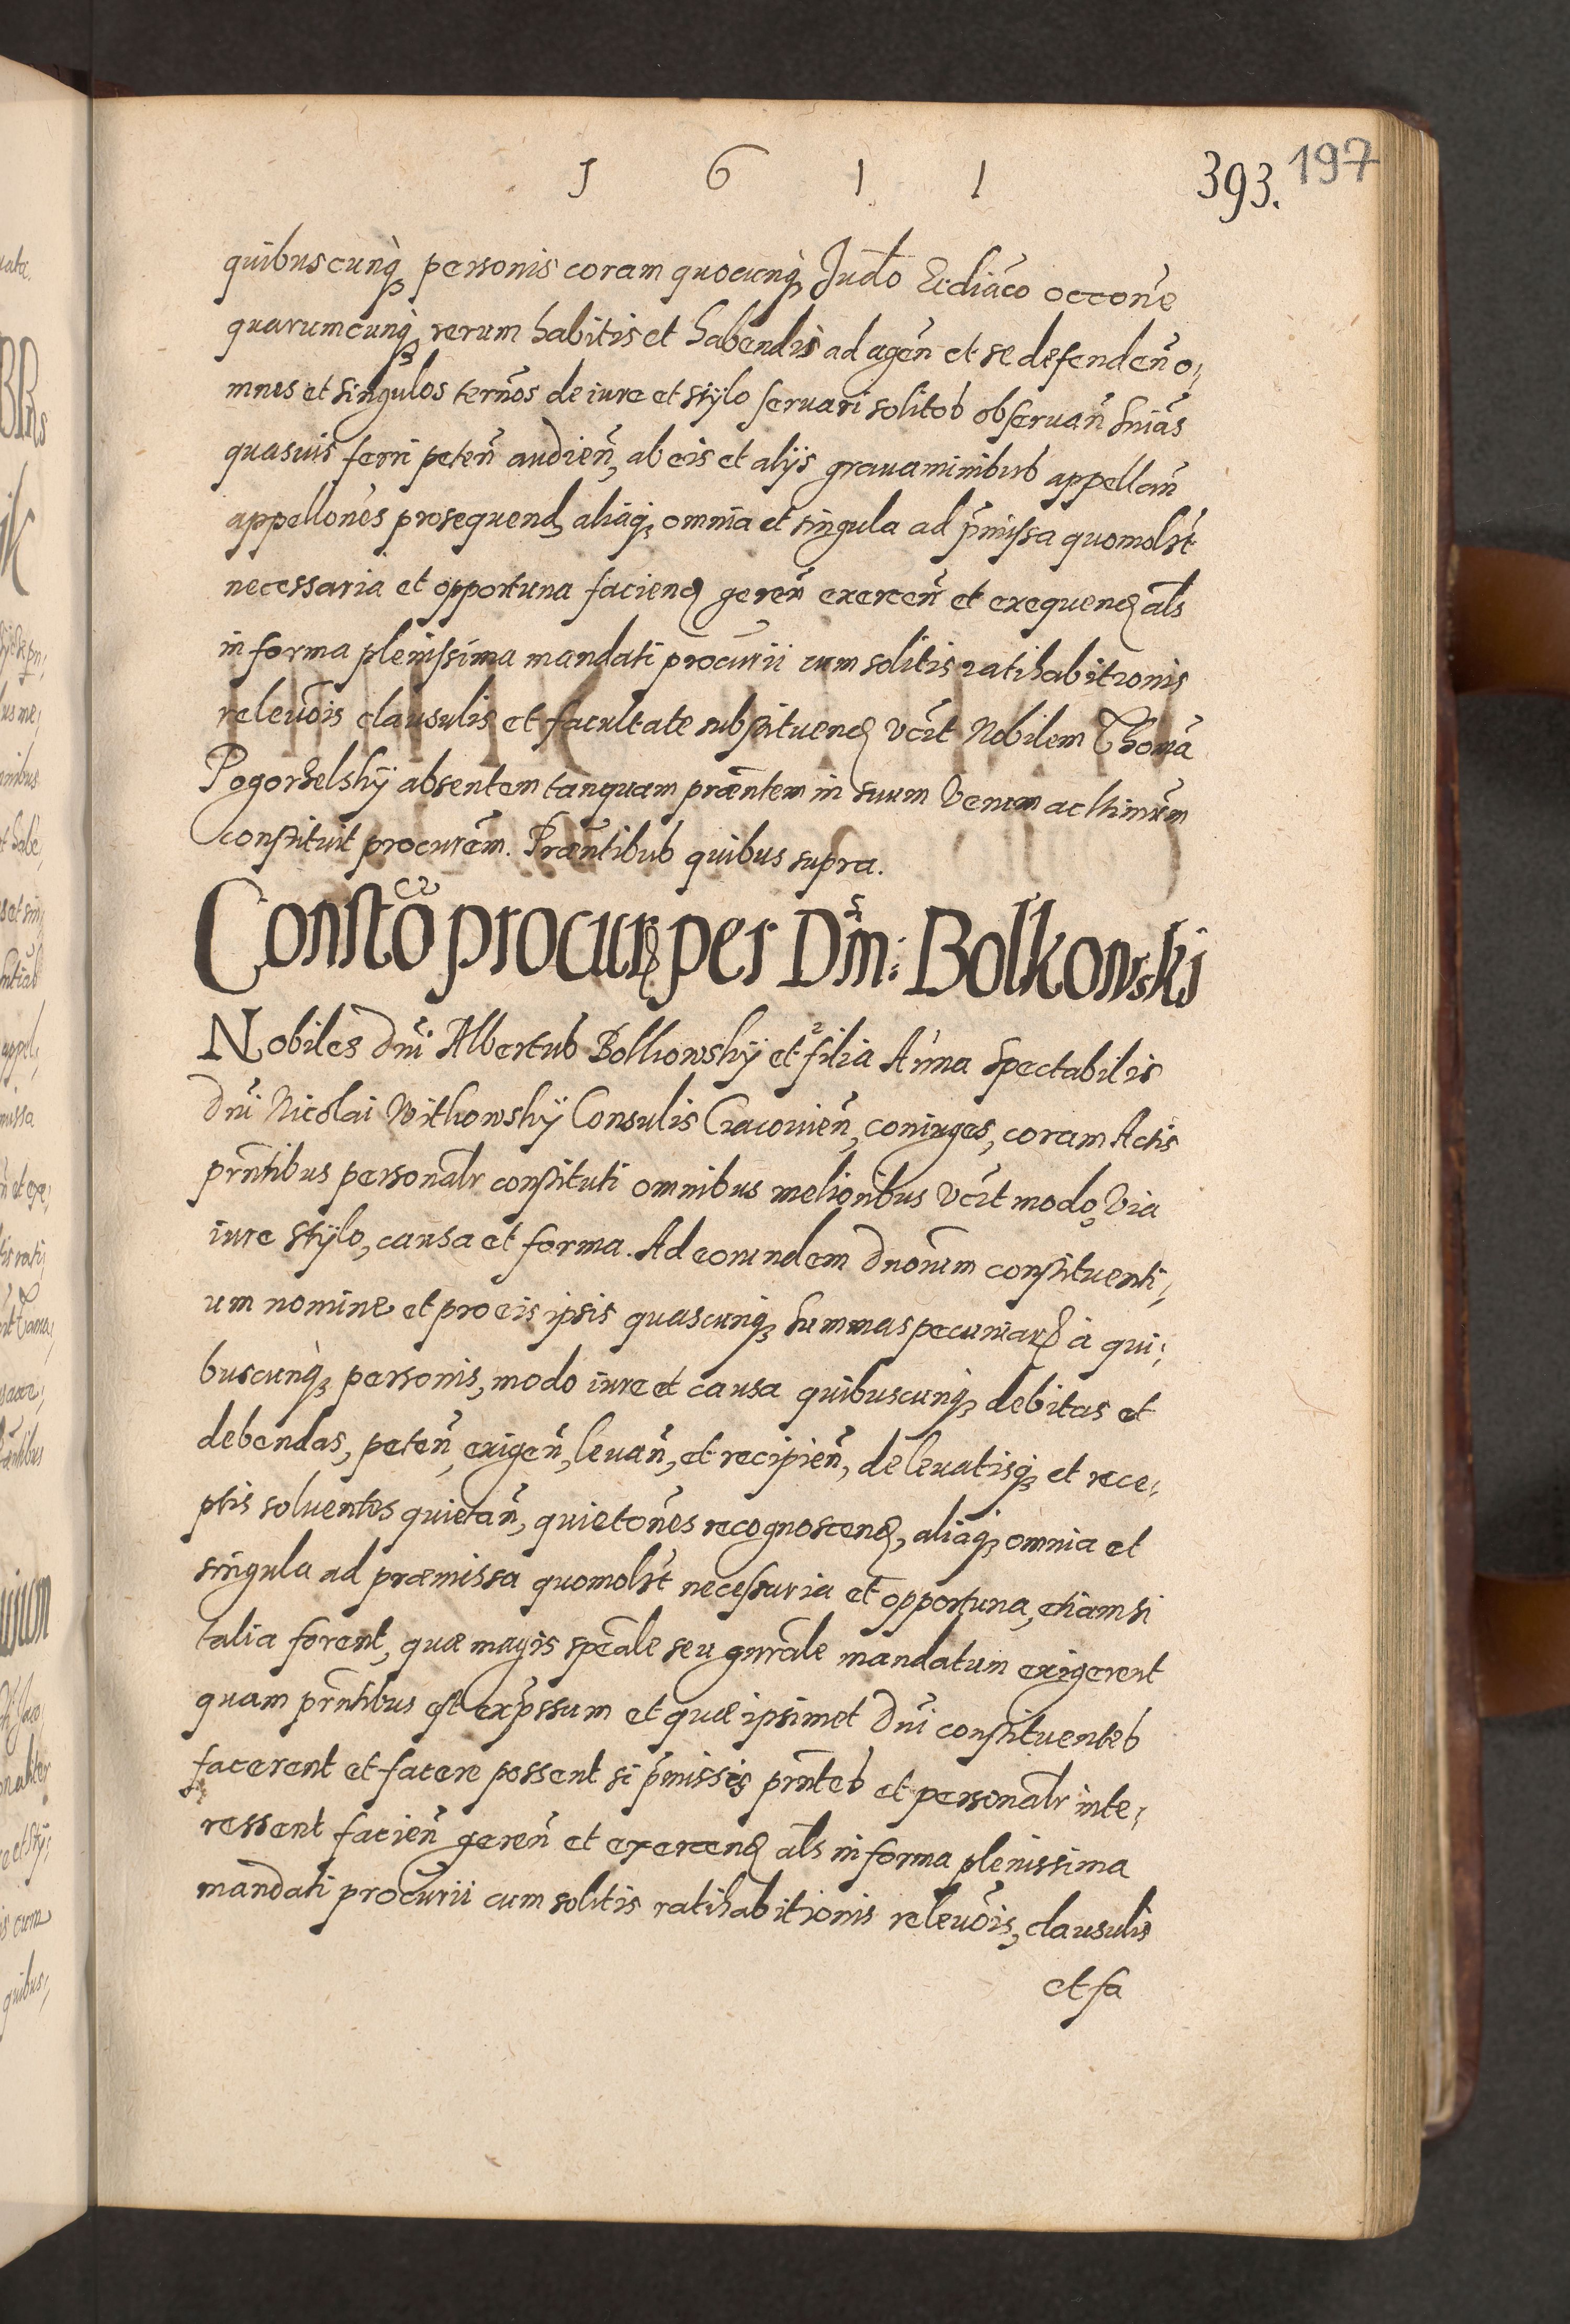 1 6 1 1
393. 197
quibuscunq̀ꝫ personis coram quocunq̀ꝫ Jud̃o Ecdiãco occonẽ̱
quarumcunq̀ꝫ rerum habitis et habendis ad agen̄ et se defenden̄ o-
mnes et singulos term̄os de iure et stylo seruari solitos obseruan̄ sniās
quasuis ferri peten̄ audien̄, ab eis et alijs grauaminibus appellan̄
appellōnes prosequend, aliaq̀ꝫ omnia et singula ad p̄missa quomolꝫt
necessaria et opportuna faciend geren̄ exercen̄ et exequend als
in forma plenissima mandati procurii cum solitis ratihabitionis
releuōis clausulis et facultate substituend vc̄it Nobilem Thomā
Pogorzelskÿ absentem tanquam præn̄tem in suum verum ac ltimūm
constituit procurēm. Præn̄tibus quibus supra.
Constcō procurꝫ per Dn̄m: Bolkowski
Nobiles dn̄i Albertus Bolkowskÿ et filia Anna Spectabilis
dn̄i Nicolai Witkowskÿ Consulis Cracouien̄, coniuges, coram Actis
prn̄tibus personalr constituti omnibus melioribus vc̄it modo, via
iure stÿlo, causa et forma. Ad eorundem dnorūm constituenti-
um nomine et pro eis ipsis quascunq̀ꝫ summas pecuniarꝫ à qui-
buscunq̀ꝫ personis, modo iure et causa quibuscunq̀ꝫ debitas et
debendas, peten̄, exigen̄, leuan̄, et recipien̄, de leuatisq̀ꝫ et rece-
ptis soluentes quietan̄, quietōnes recognoscend, aliaq̀ꝫ omnia et
singula ad præmissa quomolꝫt necessaria et opportuna, etiamsi
talia forent, quæ magis spēale seu gnrāle mandatum exigerent
quam prn̄tibus est exp̄ssum et quæ ipsimet dn̄i constituentes
facerent et facere possent si p̄missis prn̄tes et personalr inte-
ressent facien̄ geren̄ et exercend als in forma plenissima
mandati procurii cum solitis ratihabitionis releuōis, clausulis
et fa